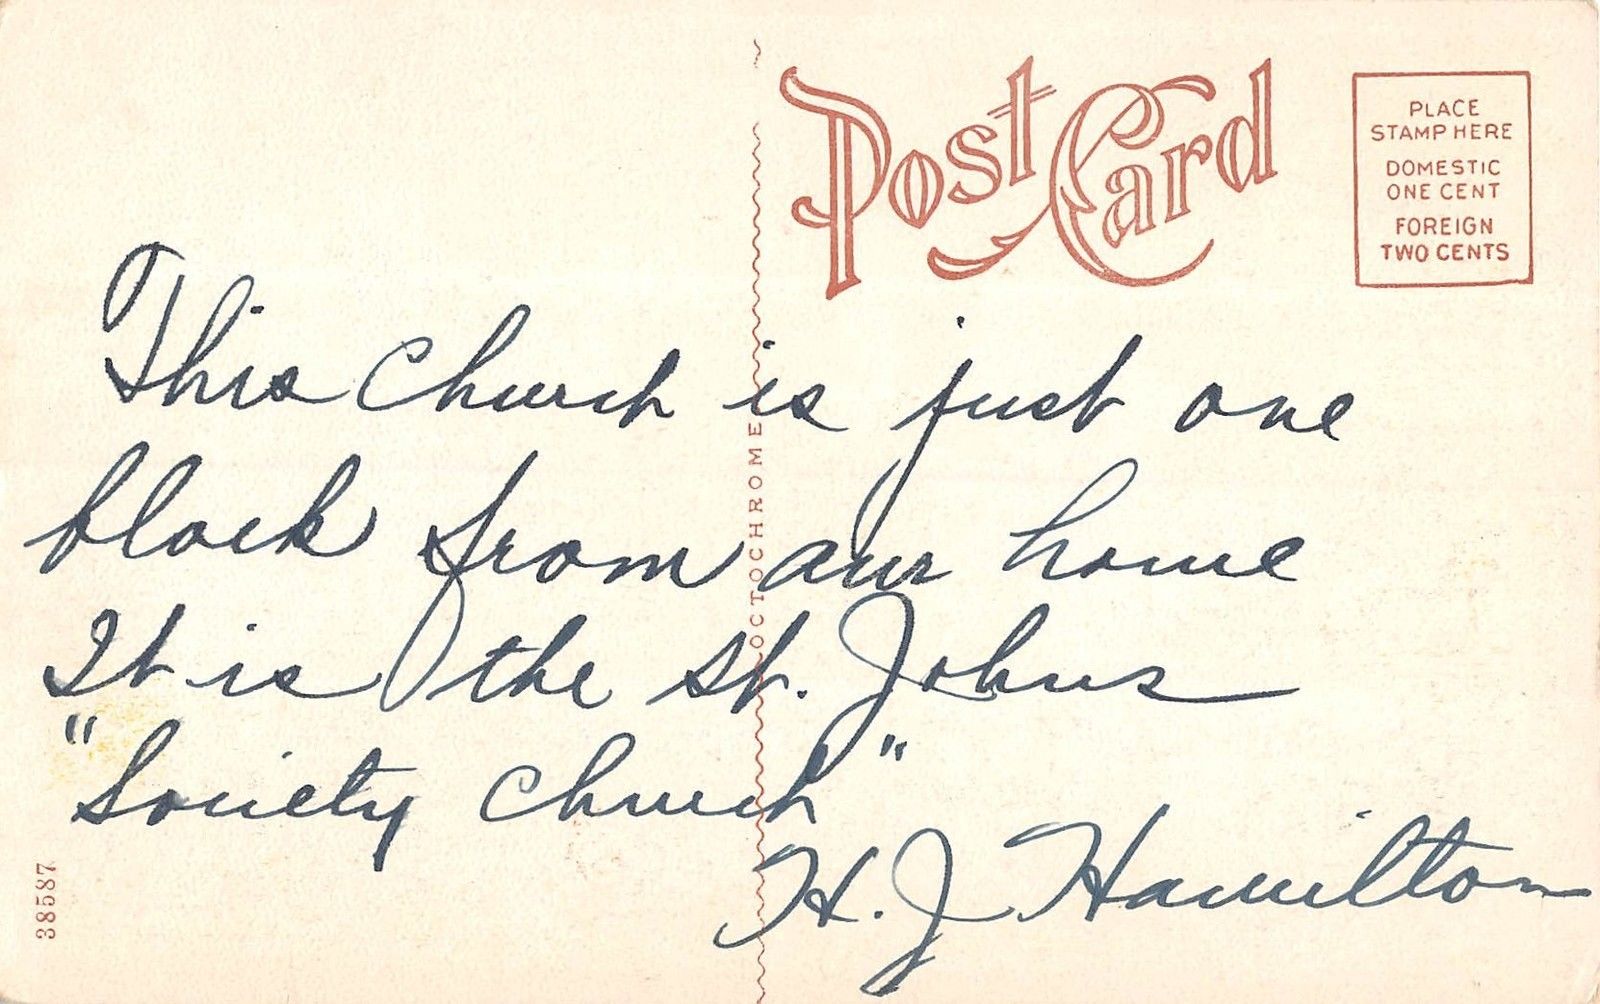 Post Card
PLACE
STAMP HERE
DOMESTIC
ONE CENT
FOREIGN
TWO CENTS
This Church is just one
block from our home
It is the St. Johns
"Society Church"
H. J. Hamilton
OCTOCHROME
38587